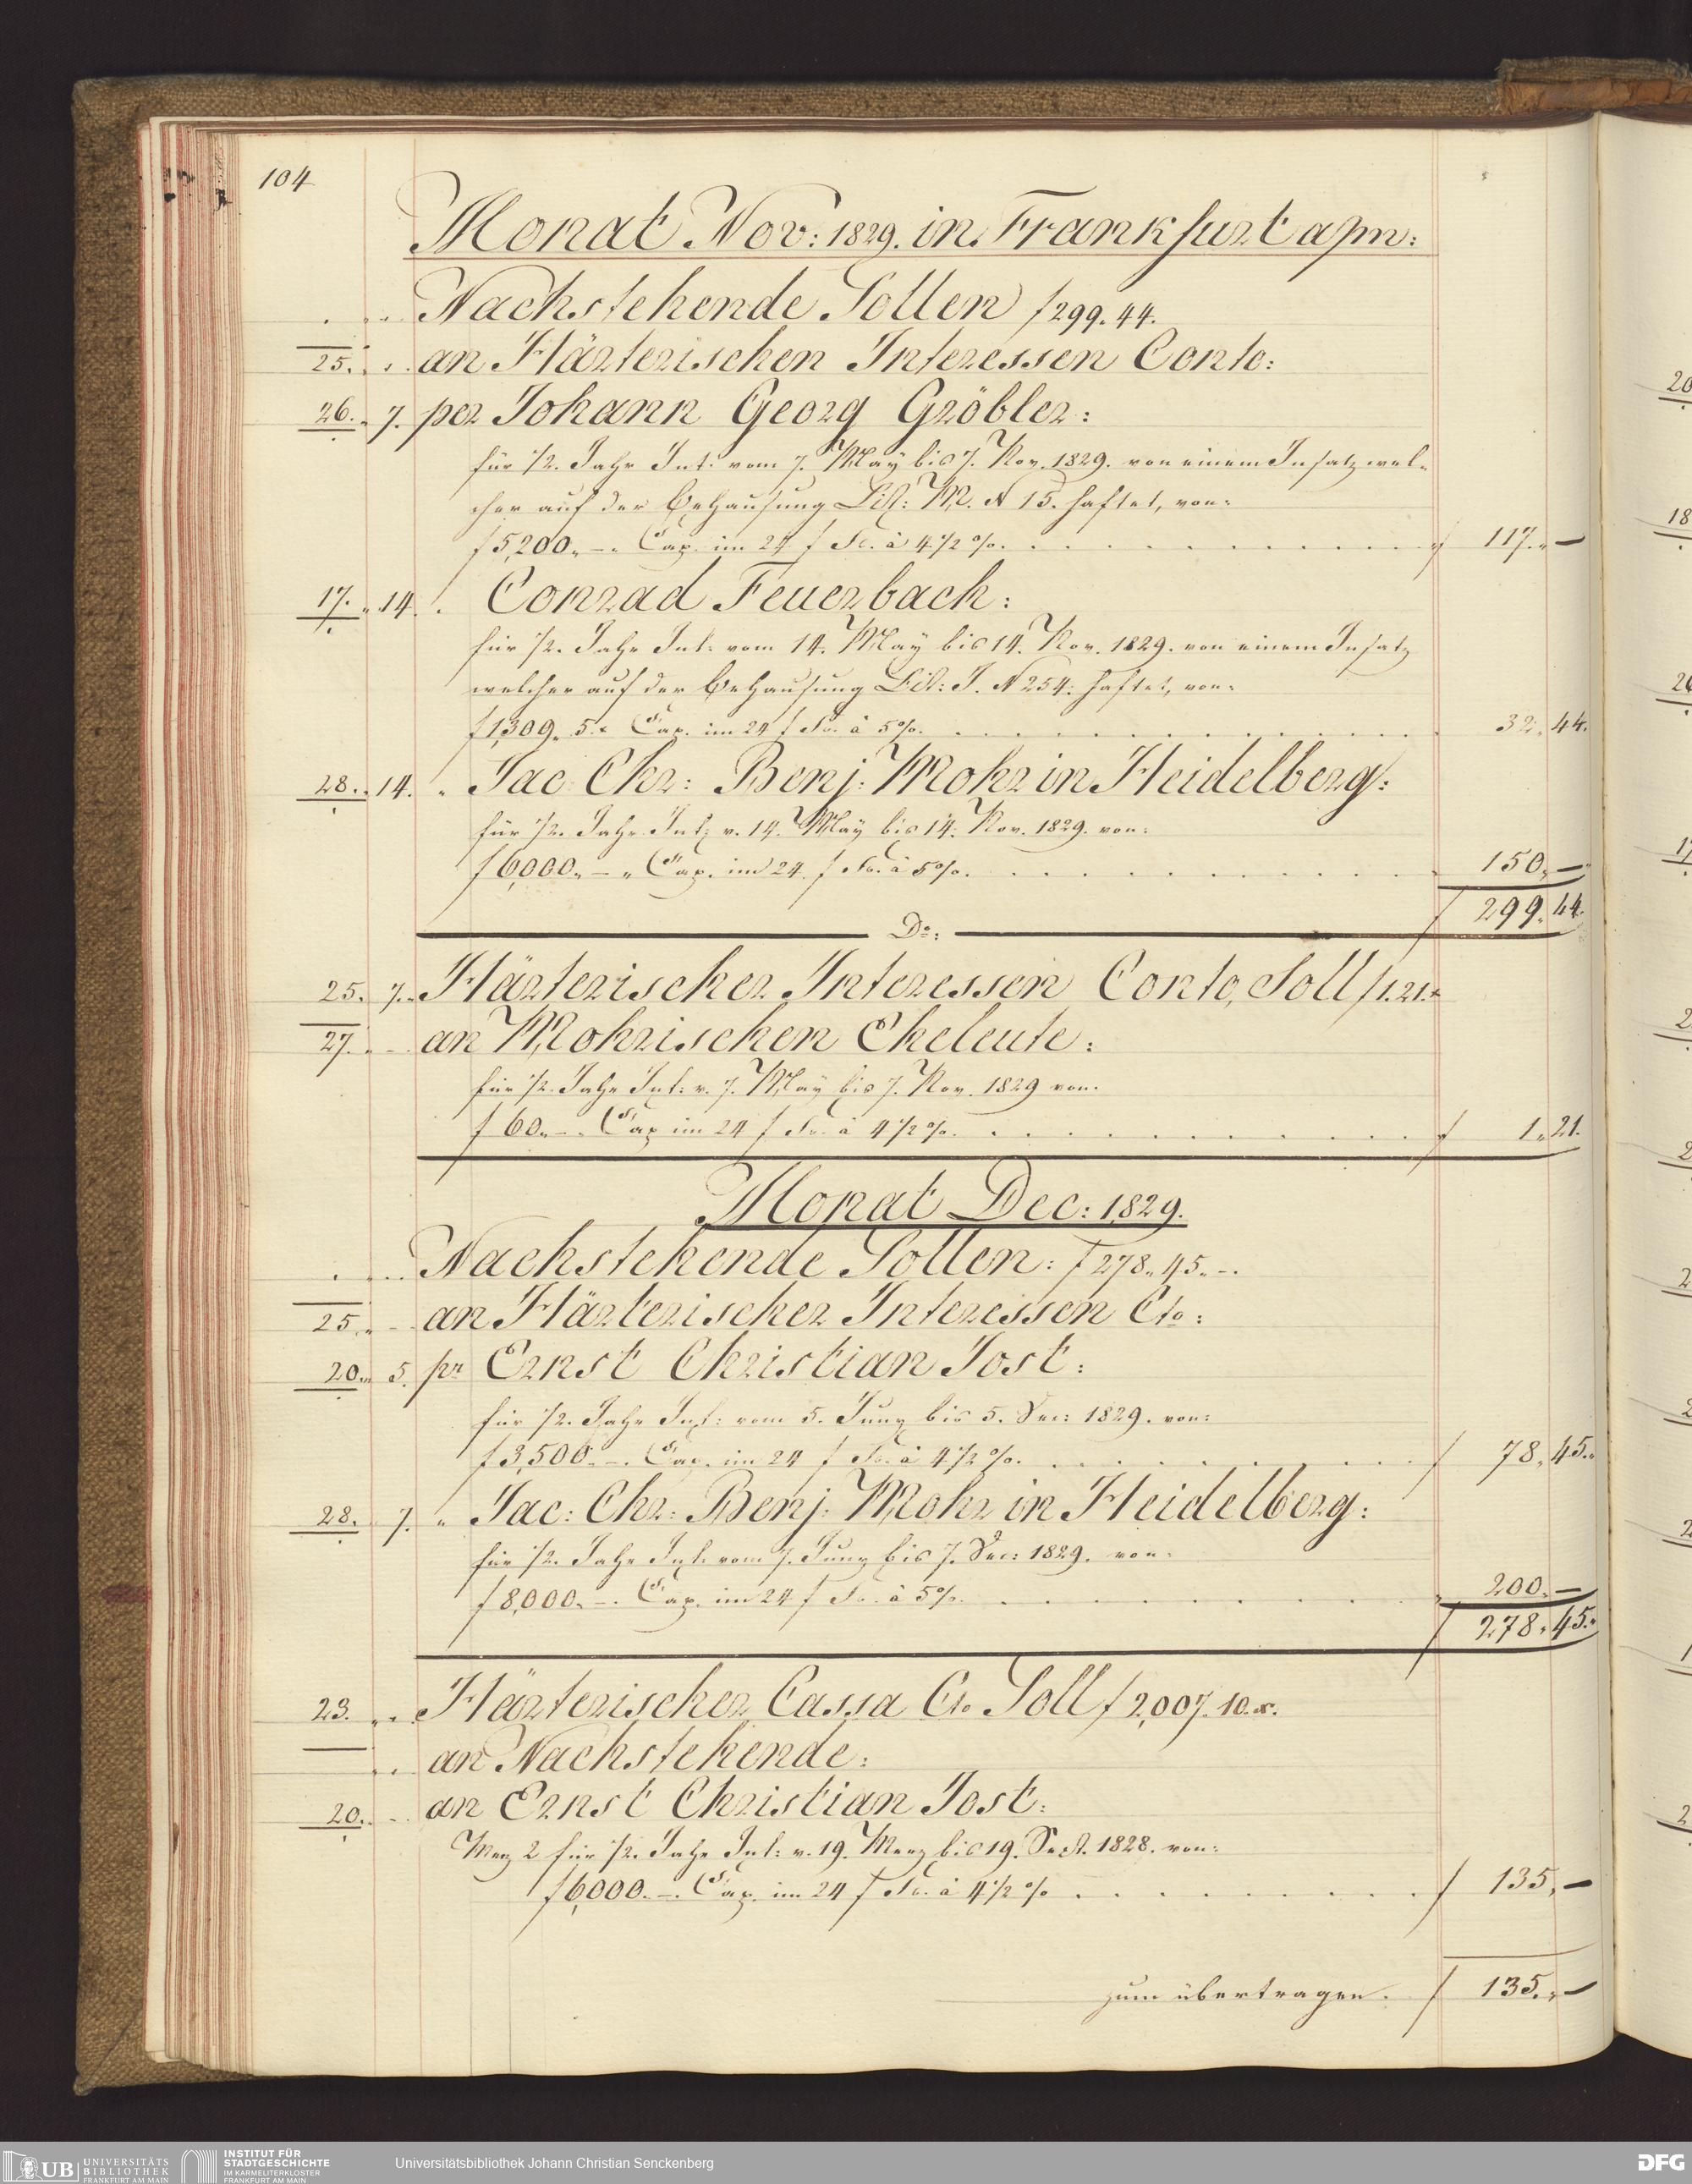 104
Monat Nov: 1829. in Frankfurt a/m:
Nachstehende Sollen f 299. 44.
25. an Härterischen Interessen Conto:
26. 7. per Johann Georg Gröbler:
für 1/2. Jahr Int: vom 7. May bis 7. Nov. 1829. von einem Insatz wel-
cher auf der Behausung Lit: M. N 15. haftet, von:
f 5,200. –. Cap. im 24 f Fs. à 4 1/2 %. f 117. –
17. 14. Conrad Feuerbach:
für 1/2. Jahr Int: vom 14. May bis 14. Nov. 1829. von einem Insatz
welcher auf der Behausung Lit: J. N 254: haftet, von:
f 1,309. 5. Cap. im 24 f Fs. à 5 %. 32. 44.
28. 14. " Jac: Chr: Benj: Mohr in Heidelberg:
für 1/2. Jahr Int: v. 14. May bis 14. Nov. 1829. von:
f 6,000. – " Cap. im 24. f Fs. à 5 %. 150. –
f 299. 44.
Do:
25. 7. Härterischer Interessen Conto, Soll f 1. 21. x
27. an Mohrischen Eheleute:
für 1/2. Jahr Int: v. 7. May bis 7. Nov. 1829 von.
f 60. –. Cap im 24 f Fs. à 4 1/2 %. f 1. 21.
Monat Dec: 1829.
Nachstehende Sollen: f 278. 45. –.
25. an Härterischer Interessen Cto:
20. 5. pr Ernst Christian Jost:
für 1/2. Jahr Int: vom 5. Juny bis 5. Dec: 1829. von:
f 3,500. –. Cap. im 24 f Fs. à 4 1/2 %. f 78. 45.
28. 7. " Jac: Chr: Benj: Mohr in Heidelberg:
für 1/2. Jahr Int: vom 7. Juny bis 7. Dec: 1829. von:
f 8,000. –. Cap. im 24 f Fs. à 5 %. 200. –
f 278. 45.
23. Härterischer Cassa Cto Soll f 2,007. 10. x.
an Nachstehende:
20. an Ernst Christian Jost:
Merz 2 für 1/2. Jahr Int: v. 19. Merz bis 19. Sept. 1828. von:
f 6,000. –. Cap. im 24 f Fs. à 4 1/2 % f 135. –
zum übertragen. f 135. –
UB UNIVERSITÄTS BIBLIOTHEK FRANKFURT AM MAIN
INSTITUT FÜR STADTGESCHICHTE IM KARMELITERKLOSTER FRANKFURT AM MAIN
Universitätsbibliothek Johann Christian Senckenberg
DFG